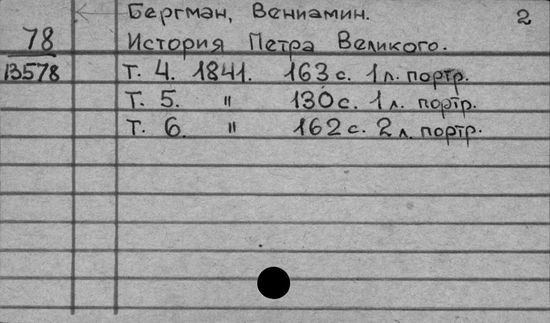 Бергман, Вениамин. 2
78 История Петра Великого.
13578 Т. 4. 1841. 163 с. 1 л. портр.
Т. 5. " 130 с. 1 л. портр.
Т. 6. " 162 с. 2 л. портр.